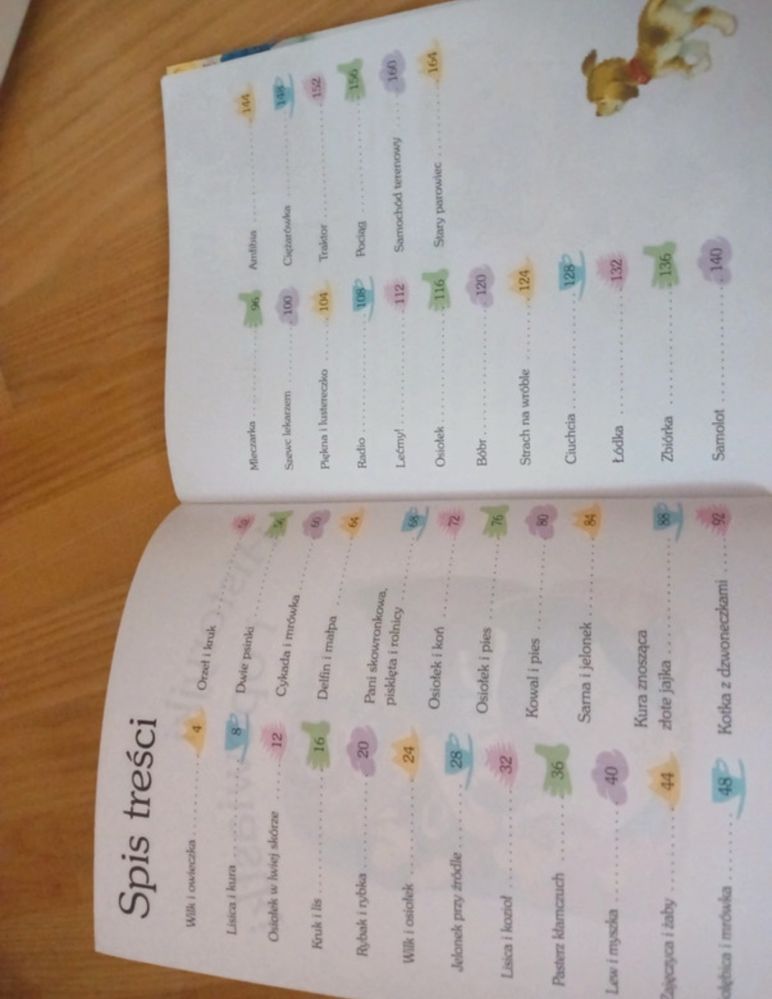 Spis treści
Wilk i owieczka ........ 4
Lisica i kura ........ 8
Osiołek w lwiej skórze ........ 12
Kruk i lis ........ 16
Rybak i rybka ........ 20
Wilk i osiołek ........ 24
Jelonek przy źródle ........ 28
Lisica i kozioł ........ 32
Pasterz kłamczuch ........ 36
Lew i myszka ........ 40
Zajęczyca i żaby ........ 44
ołębica i mrówka ........ 48
Orzeł i kruk ........ 52
Dwie psinki ........ 56
Cykada i mrówka ........ 60
Delfin i małpa ........ 64
Pani skowronkowa,
pisklęta i rolnicy ........ 68
Osiołek i koń ........ 72
Osiołek i pies ........ 76
Kowal i pies ........ 80
Sarna i jelonek ........ 84
Kura znosząca
złote jajka ........ 88
Kotka z dzwoneczkami ........ 92
Mleczarka ........ 96
Szewc lekarzem ........ 100
Piękna i lustereczko ........ 104
Radio ........ 108
Lećmy! ........ 112
Osiołek ........ 116
Bóbr ........ 120
Strach na wróble ........ 124
Ciuchcia ........ 128
Łódka ........ 132
Zbiórka ........ 136
Samolot ........ 140
Amfibia ........ 144
Ciężarówka ........ 148
Traktor ........ 152
Pociąg ........ 156
Samochód terenowy ........ 160
Stary parowiec ........ 164